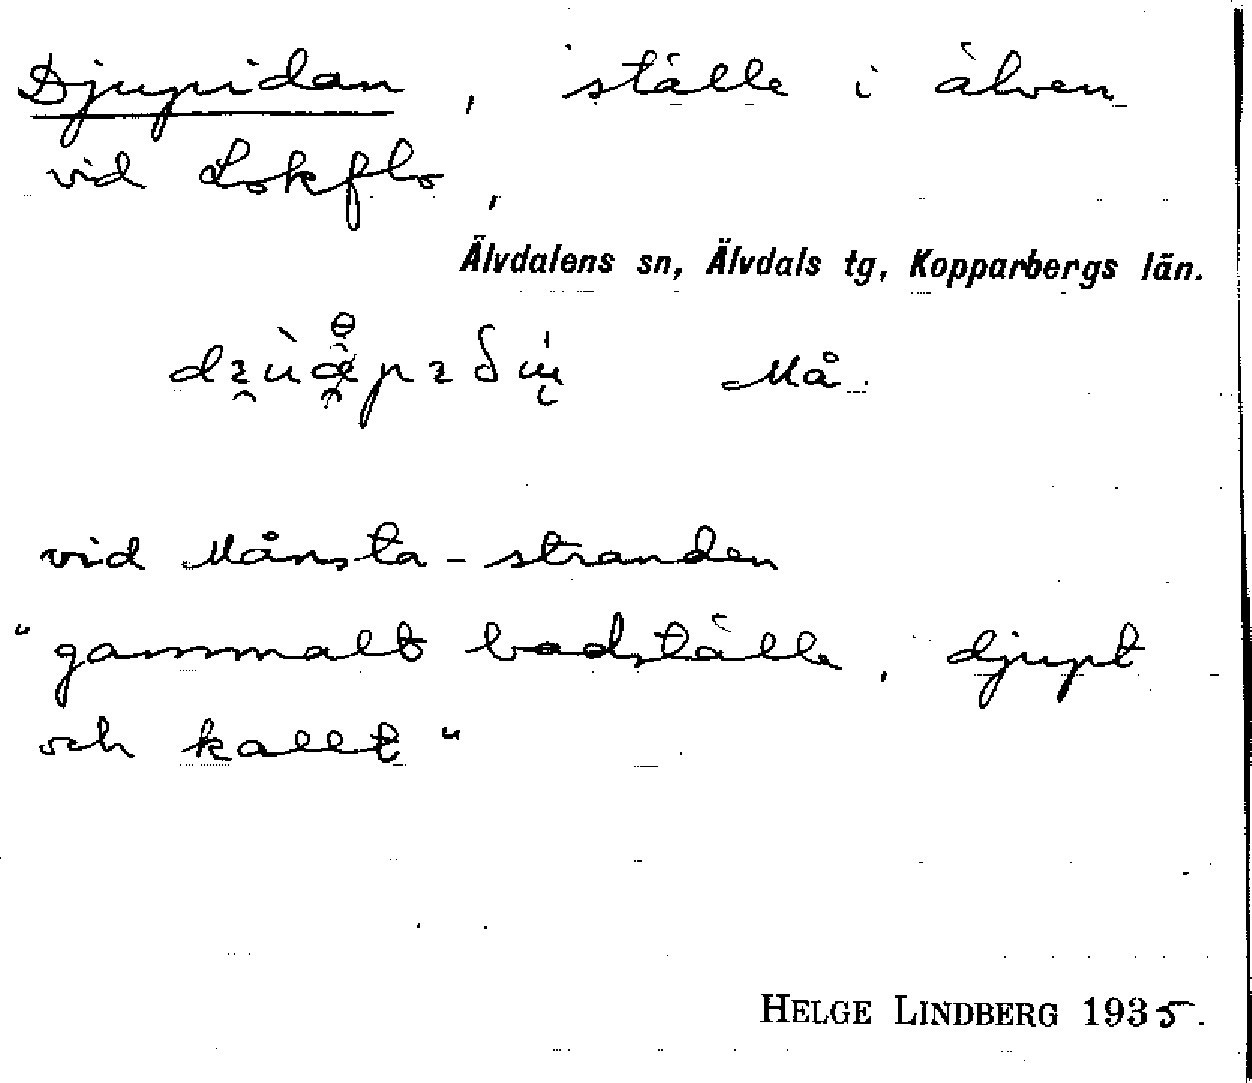 Djupidan, ställe i älven
vid Lokflo,
Älvdalens sn, Älvdals tg, Kopparbergs län.
Må.
vid Månsta-stranden
"gammalt badställe, djupt
och kallt"
HELGE LINDBERG 1935.